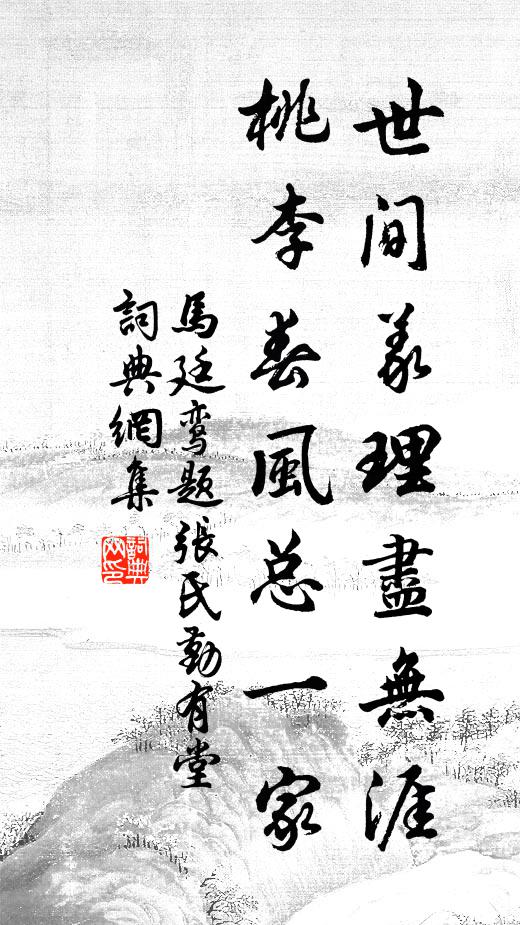 世间义理盡無涯
桃李春風总一家
馬廷鸾题張氏勤有堂
詞典網集
詞典網印